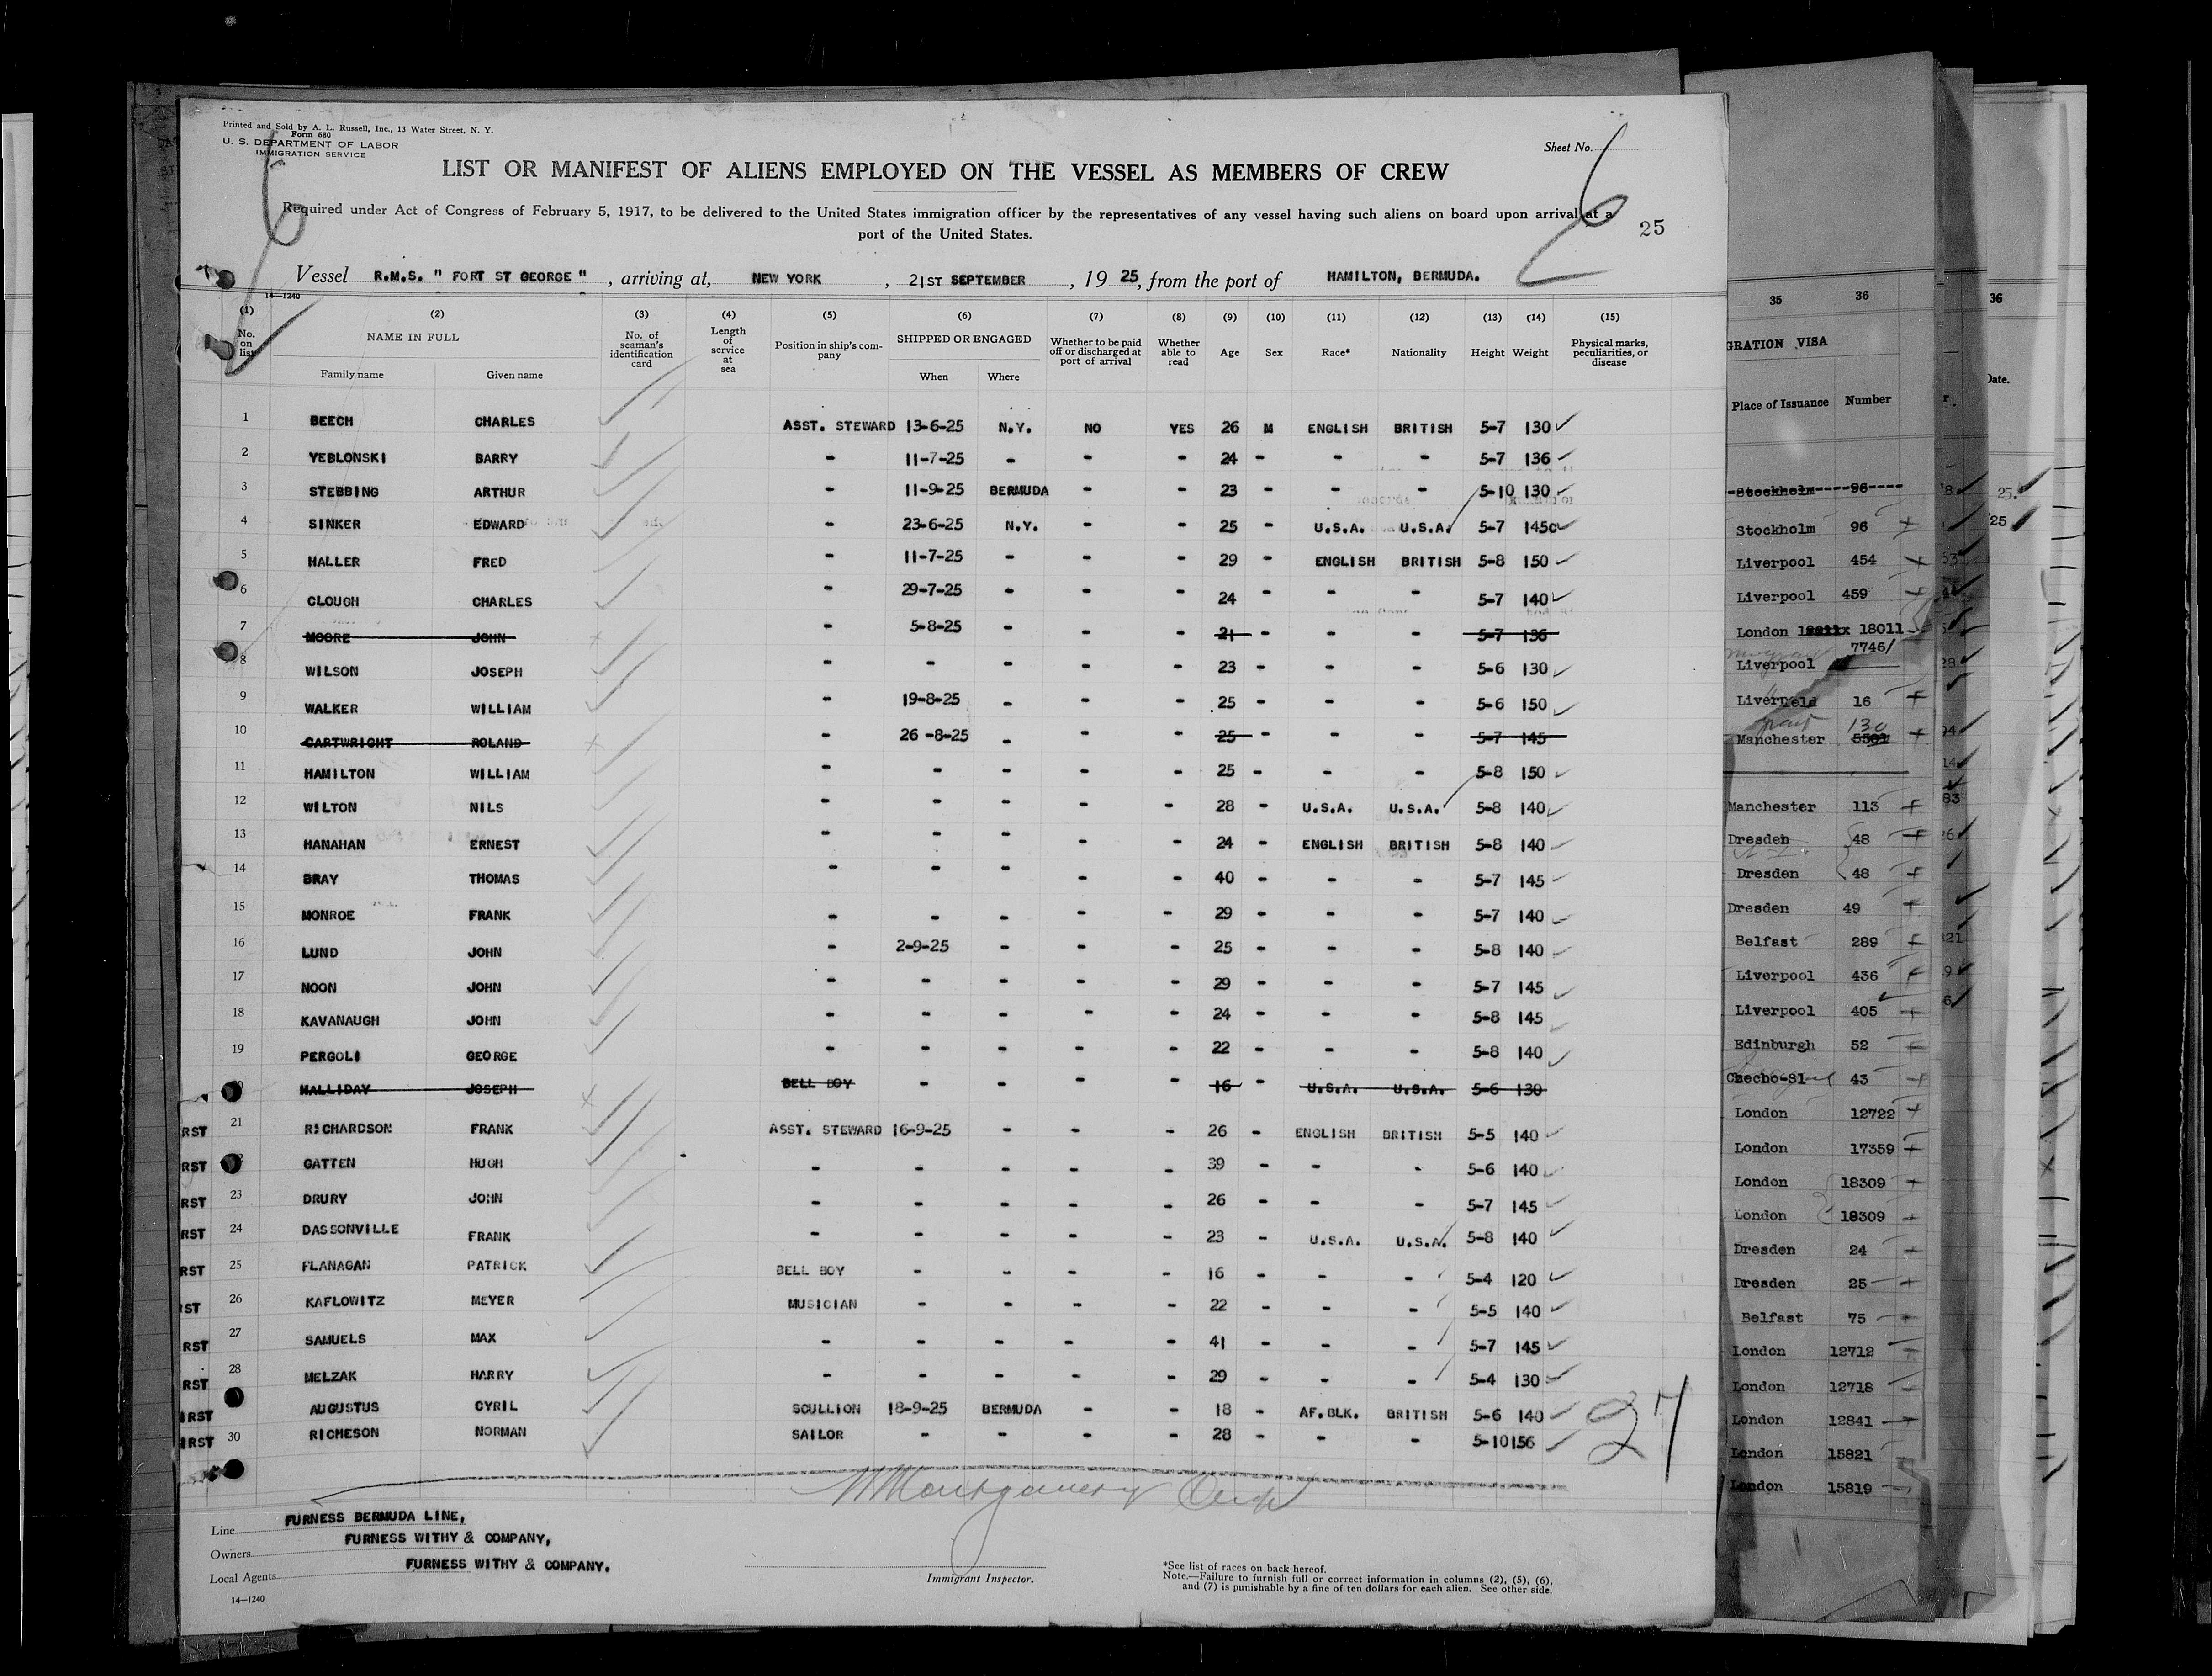 Printed and Sold by A. L. Russell, Inc., 13 Water Street, N. Y.
Form 680
U. S. DEPARTMENT OF LABOR
IMMIGRATION SERVICE
Sheet No. 6
6
LIST OR MANIFEST OF ALIENS EMPLOYED ON THE VESSEL AS MEMBERS OF CREW
Required under Act of Congress of February 5, 1917, to be delivered to the United States immigration officer by the representatives of any vessel having such aliens on board upon arrival at a
port of the United States.
25
Vessel R.M.S. " FORT ST GEORGE " , arriving at, NEW YORK , 21ST SEPTEMBER , 19 25, from the port of HAMILTON, BERMUDA.
14—1240
(1) (2) (3) (4) (5) (6) (7) (8) (9) (10) (11) (12) (13) (14) (15)
No. on list NAME IN FULL No. of seaman's identification card Length of service at sea Position in ship's company SHIPPED OR ENGAGED Whether to be paid off or discharged at port of arrival Whether able to read Age Sex Race* Nationality Height Weight Physical marks, peculiarities, or disease
Family name Given name When Where
1 BEECH CHARLES ASST. STEWARD 13-6-25 N.Y. NO YES 26 M ENGLISH BRITISH 5-7 130
2 YEBLONSKI BARRY - 11-7-25 - - - 24 - - - 5-7 136
3 STEBBING ARTHUR - 11-9-25 BERMUDA - - 23 - - - 5-10 130
4 SINKER EDWARD - 23-6-25 N.Y. - - 25 - U.S.A. U.S.A. 5-7 145
5 HALLER FRED - 11-7-25 - - - 29 - ENGLISH BRITISH 5-8 150
6 CLOUGH CHARLES - 29-7-25 - - - 24 - - - 5-7 140
7 MOORE JOHN - 5-8-25 - - - 21 - - - 5-7 136
8 WILSON JOSEPH - - - - - 23 - - - 5-6 130
9 WALKER WILLIAM - 19-8-25 - - - 25 - - - 5-6 150
10 CARTWRIGHT ROLAND - 26 -8-25 - - - 25 - - - 5-7 145
11 HAMILTON WILLIAM - - - - - 25 - - - 5-8 150
12 WILTON NILS - - - - - 28 - U.S.A. U.S.A. 5-8 140
13 HANAHAN ERNEST - - - - - 24 - ENGLISH BRITISH 5-8 140
14 BRAY THOMAS - - - - - 40 - - - 5-7 145
15 MONROE FRANK - - - - - 29 - - - 5-7 140
16 LUND JOHN - 2-9-25 - - - 25 - - - 5-8 140
17 NOON JOHN - - - - - 29 - - - 5-7 145
18 KAVANAUGH JOHN - - - - - 24 - - - 5-8 145
19 PERGOLI GEORGE - - - - - 22 - - - 5-8 140
HALLIDAY JOSEPH BELL BOY - - - - 16 - U.S.A. U.S.A. 5-6 130
RST 21 RICHARDSON FRANK ASST. STEWARD 16-9-25 - - - 26 - ENGLISH BRITISH 5-5 140
RST GATTEN HUGH - - - - - 39 - - - 5-6 140
RST 23 DRURY JOHN - - - - - 26 - - - 5-7 145
RST 24 DASSONVILLE FRANK - - - - - 23 - U.S.A. U.S.A. 5-8 140
RST 25 FLANAGAN PATRICK BELL BOY - - - - 16 - - - 5-4 120
ST 26 KAFLOWITZ MEYER MUSICIAN - - - - 22 - - - 5-5 140
RST 27 SAMUELS MAX - - - - - 41 - - - 5-7 145
RST 28 MELZAK HARRY - - - - - 29 - - - 5-4 130
IRST AUGUSTUS CYRIL SCULLION 18-9-25 BERMUDA - - 18 - AF.BLK. BRITISH 5-6 140
IRST 30 RICHESON NORMAN SAILOR - - - - 28 - - - 5-10 156
27
Line FURNESS BERMUDA LINE,
Owners FURNESS WITHY & COMPANY,
Local Agents FURNESS WITHY & COMPANY.
14—1240
Immigrant Inspector.
*See list of races on back hereof.
Note.—Failure to furnish full or correct information in columns (2), (5), (6),
and (7) is punishable by a fine of ten dollars for each alien. See other side.
35 36
GRATION VISA
Place of Issuance Number
Stockholm 96
Stockholm 96
Liverpool 454
Liverpool 459
London 18011
7746/
Liverpool
16
130
Manchester
Manchester 113
Dresden 48
Dresden 48
Dresden 49
Belfast 289
Liverpool 436
Liverpool 405
Edinburgh 52
Checho-Sl 43
London 12722
London 17359
London 18309
London 18309
Dresden 24
Dresden 25
Belfast 75
London 12712
London 12718
London 12841
London 15821
London 15819
36
Date.
25.
25